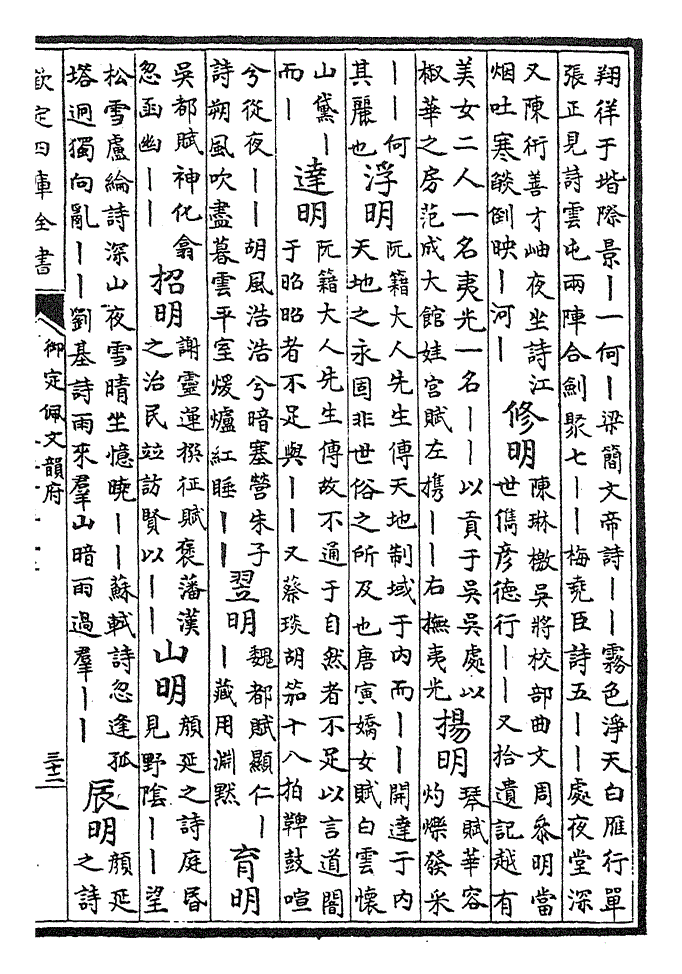 翔徉于堦際景｜一何｜梁簡文帝詩｜｜霧色淨天白雁行單
張正見詩雲屯兩陣合劍聚七｜｜梅堯臣詩五｜｜處夜堂深
又陳術善才岫夜坐詩江
烟吐寒燄倒映｜河｜
修明
陳琳檄吳將校部曲文周泰明當
世儁彥德行｜｜又拾遺記越有
美女二人一名夷光一名｜｜以貢于吳吳處以
椒華之房范成大館娃宮賦左擕｜｜右撫夷光
揚明
琴賦華容
灼爍發采
｜｜何
其麗也
浮明
阮籍大人先生傳天地制域于内而｜｜開達于内
天地之永固非世俗之所及也唐寅嬌女賦白雲懷
山黛｜
而｜
達明
阮籍大人先生傳故不通于自然者不足以言道闇
于昭昭者不足與｜｜又蔡琰胡笳十八拍鞞鼓喧
兮從夜｜｜胡風浩浩兮暗塞營朱子
詩朔風吹盡暮雲平室煖爐紅睡｜｜
翌明
魏都賦顯仁｜
｜藏用淵黙
育明
吳都賦神化翕
忽函幽｜｜
招明
謝靈運撰征賦褒藩漢
之治民竝訪賢以｜｜
山明
顔延之詩庭昏
見野陰｜｜望
松雪盧綸詩深山夜雪晴坐憶曉｜｜蘇軾詩忽逢孤
塔迥獨向亂｜｜劉基詩雨來羣山暗雨過羣｜｜
辰明
顔延
之詩
欽定四庫全書
御定佩文韻府
三十二